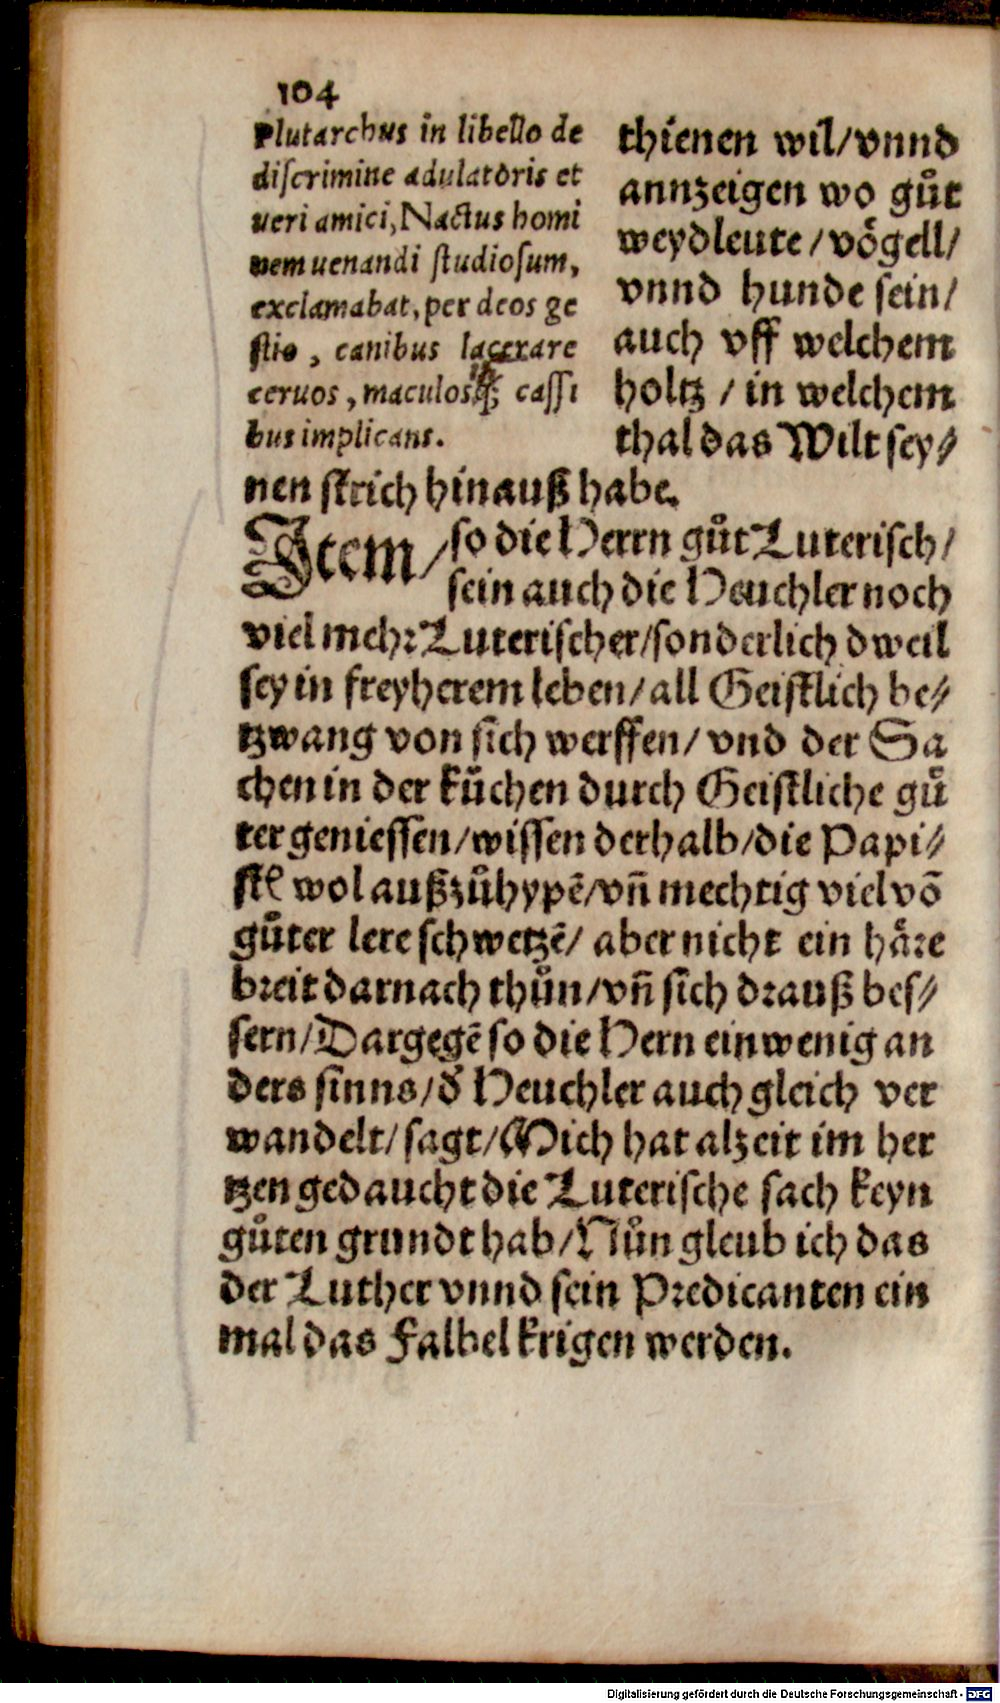 104
Plutarchus in libello de
discrimine adulatoris et
ueri amici, Nactus homi
nem uenandi studiosum,
exclamabat, per deos ge
stio, canibus lacerare
ceruos, maculosq́; cassi
bus implicans.
thienen wil/vnnd
annzeigen wo gůt
weydleute/vögell/
vnnd hunde sein/
auch vff welchem
holtz/in welchem
thal das Wilt sey⸗
nen strich hinauß habe.
Item/so die Herrn gůt Luterisch/
sein auch die Heuchler noch
viel mehr Luterischer/sonderlich dweil
sey in freyherem leben/all Geistlich be⸗
tzwang von sich werffen/vnd der Sa
chen in der küchen durch Geistliche gů
ter geniessen/wissen derhalb/die Papi⸗
stē wol außzůhypē/vn̄ mechtig viel vō
gůter lere schwetzē/aber nicht ein häre
breit darnach thůn/vn̄ sich drauß bes⸗
sern/Dargegē so die Hern ein wenig an
ders sinns/d̓ Heuchler auch gleich ver
wandelt/sagt/Mich hat alzeit im her
tzen gedaucht die Luterische sach keyn
gůten grundt hab/Nůn gleub ich das
der Luther vnnd sein Predicanten ein
mal das Falbel krigen werden.
Digitalisierung gefördert durch die Deutsche Forschungsgemeinschaft - DFG